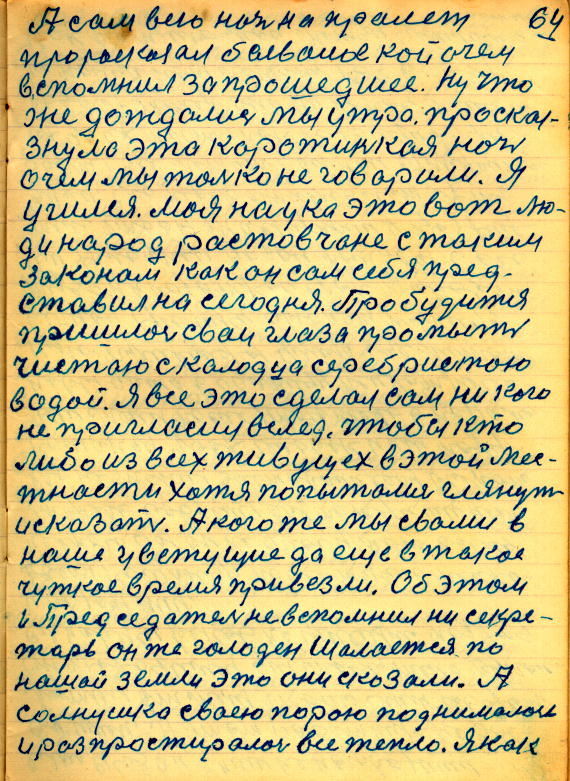 А сам всю ноч на пралет 64
прораскозал балваное кой очем
вспомнил запрошедшее. Ну что
же дождалис мы утра, проска-
знула эта каротинкая ноч
очем мы толко не говарили. Я
учился. Моя наука это вот лю-
ди народ растовчане с таким
законам как он сам себя пред-
ставил на сегодня. Пробудится
пришлос сваи глаза промыть
чистою с калодца серебристою
водой. Я все это сделал сам никого
не пригласил вслед, чтобы кто
либо из всех живущех в этой мес-
тнасти хотя попыталися глянут
исказат. А кого же мы свами в
наше цветущие да еще в такое
чуткое время привезли. Об этом
и Председател не вспомнил ни секре-
тарь он же голоден шалается по
нашай земли это они сказали. А
солнушка сваею порою поднималос
и разпростиралос все тепло. Я как